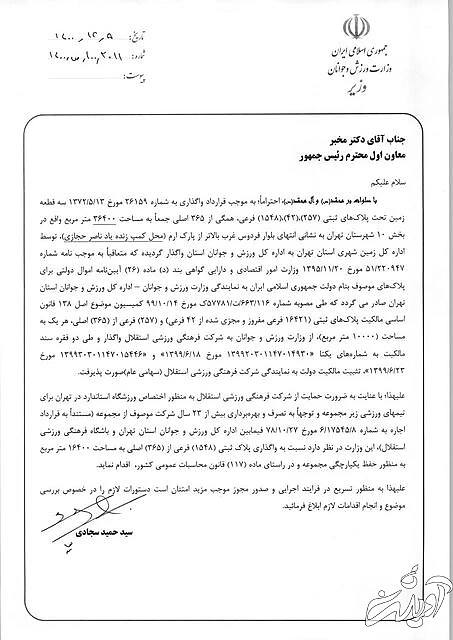 تاریخ: ۱۴۰۰/۱۲/۹
شماره:
پیوست:
جمهوری اسلامی ایران
وزارت ورزش و جوانان
وزیر
جناب آقای دکتر مخبر
معاون اول محترم رئیس جمهور
سلام علیکم
با صلوات بر محمد(ص) و آل محمد(ص)، احتراماً؛ به موجب قرارداد واگذاری به شماره ۲۶۱۵۹ مورخ ۱۳۷۲/۵/۱۳ سه قطعه
زمین تحت پلاک‌های ثبتی (۲۵۷)،(۴۲)،(۱۵۴۸) فرعی، همگی از ۳۶۵ اصلی جمعاً به مساحت ۳۶۴۰۰ متر مربع واقع در
بخش ۱۰ شهرستان تهران به نشانی انتهای بلوار فردوس غرب بالاتر از پارک ارم (محل کمپ زنده یاد ناصر حجازی)، توسط
اداره کل زمین شهری استان تهران به اداره کل ورزش و جوانان استان واگذار گردیده که متعاقباً به موجب نامه شماره
۵۱/۲۲۰۹۴۷ مورخ ۱۳۹۵/۱۱/۲۰ وزارت امور اقتصادی و دارایی گواهی بند (د) ماده (۲۶) آیین‌نامه اموال دولتی برای
پلاک‌های موصوف بنام دولت جمهوری اسلامی ایران به نمایندگی وزارت ورزش و جوانان – اداره کل ورزش و جوانان استان
تهران صادر می گردد که طی مصوبه شماره ۶۶۳/۱۱۶/ت۵۷۷۸۱ک مورخ ۹۹/۱۰/۱۴ کمیسیون موضوع اصل ۱۳۸ قانون
اساسی مالکیت پلاک‌های ثبتی (۱۶۴۲۱ فرعی مفروز و مجزی شده از ۴۲ فرعی) و (۲۵۷ فرعی) از (۳۶۵) اصلی، هر یک به
مساحت (۱۰۰۰۰ متر مربع)، از وزارت ورزش و جوانان به شرکت فرهنگی ورزشی استقلال واگذار و طی دو فقره سند
مالکیت به شماره‌های یکتا «۱۳۹۹۲۰۳۰۱۱۴۷۰۱۴۹۳۰ مورخ ۱۳۹۹/۶/۱۸» و «۱۳۹۹۳۰۳۰۱۱۴۷۰۱۵۴۴۶ مورخ
۱۳۹۹/۶/۲۳»، تثبیت مالکیت دولت به نمایندگی شرکت فرهنگی ورزشی استقلال (سهامی عام)صورت پذیرفت.
علیهذا؛ با عنایت به ضرورت حمایت از شرکت فرهنگی ورزشی استقلال به منظور اختصاص ورزشگاه استاندارد در تهران برای
تیمهای ورزشی زیر مجموعه و توجهاً به تصرف و بهره‌برداری بیش از ۲۳ سال شرکت موصوف از مجموعه (مستنداً به قرارداد
اجاره به شماره ۶/۱۷۵۴۵/۸ مورخ ۷۸/۱۰/۲۷ فیمابین اداره کل ورزش و جوانان استان تهران و باشگاه فرهنگی ورزشی
استقلال)، این وزارت در نظر دارد نسبت به واگذاری پلاک ثبتی (۱۵۴۸) فرعی از (۳۶۵) اصلی به مساحت ۱۶۴۰۰ متر مربع
به منظور حفظ یکپارچگی مجموعه و در راستای ماده (۱۱۷) قانون محاسبات عمومی کشور، اقدام نماید.
علیهذا به منظور تسریع در فرایند اجرایی و صدور مجوز موجب مزید امتنان است دستورات لازم را در خصوص بررسی
موضوع و انجام اقدامات لازم ابلاغ فرمائید.
سید حمید سجادی